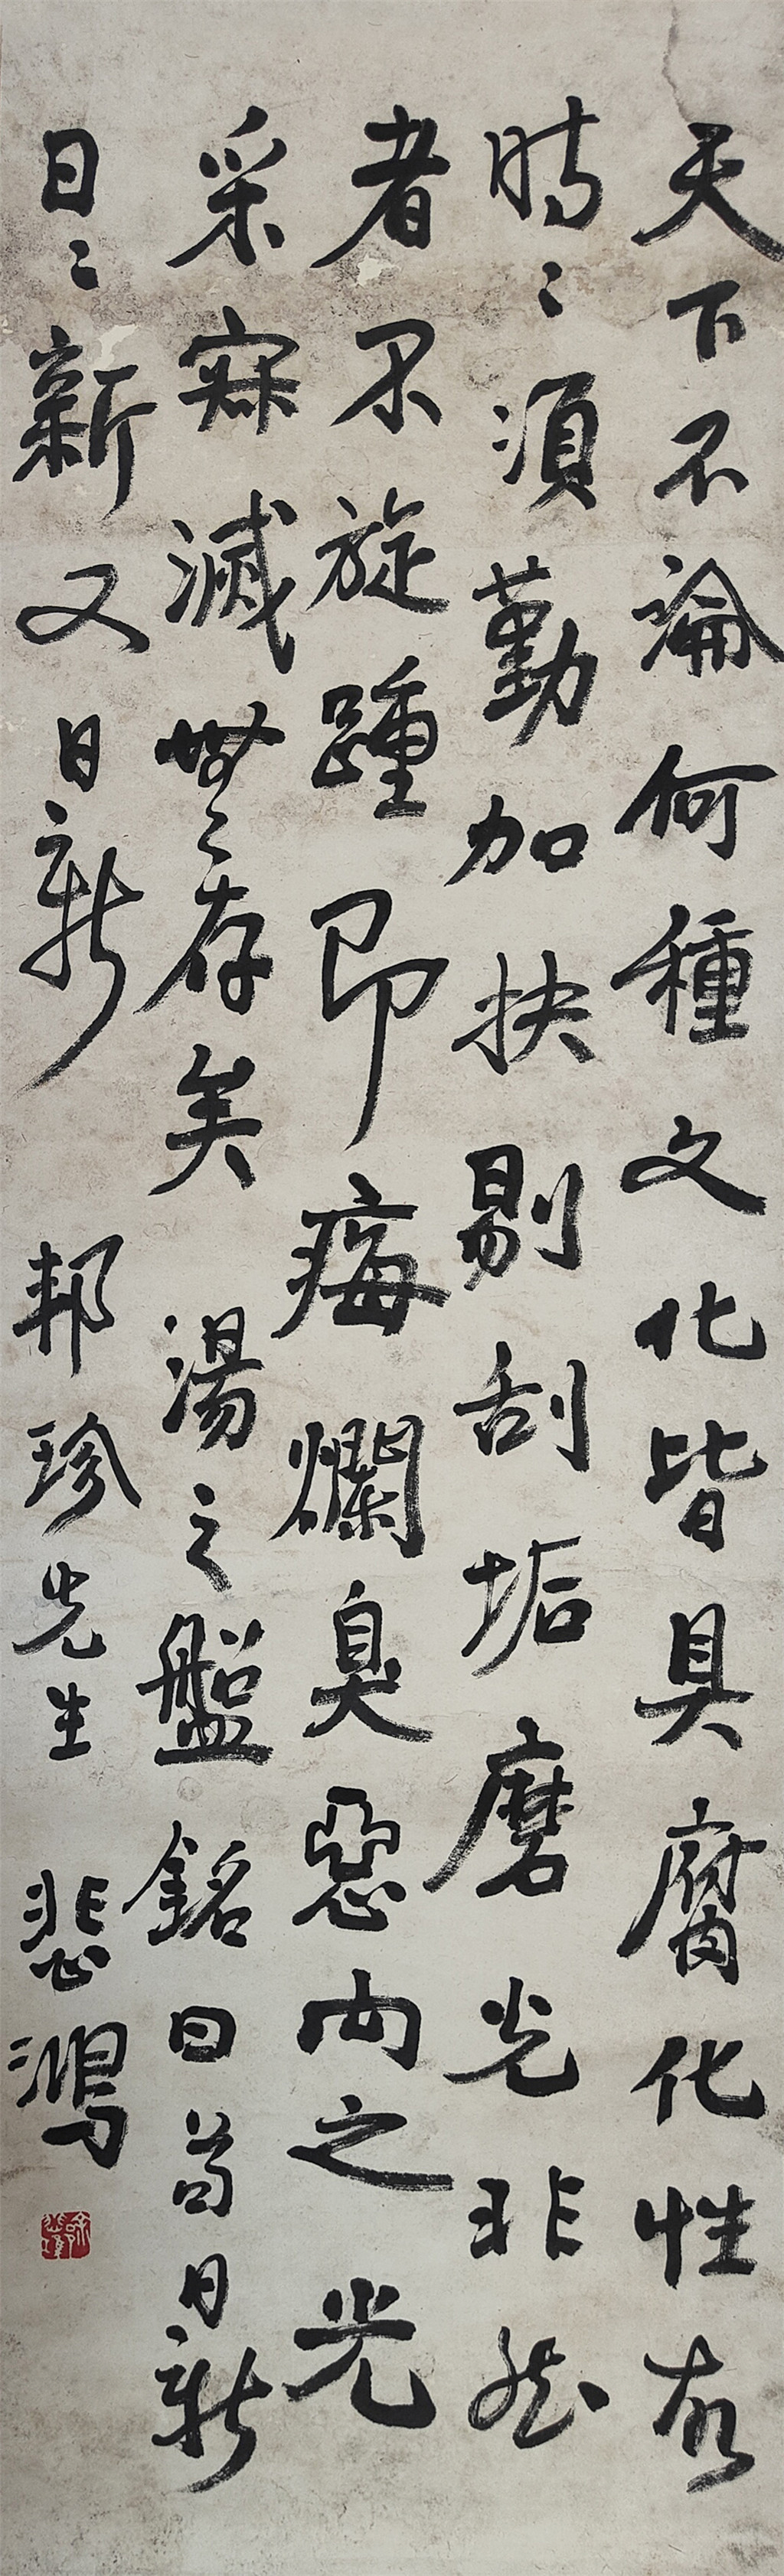 天下不論何種文化皆具腐化性故
時〻須勤加抉剔刮垢磨光非然
者不旋踵即痗爛臭惡向之光
采寂滅無〻存矣 湯之盤銘曰苟日新
日〻新又日新 邦珍先生 悲鴻